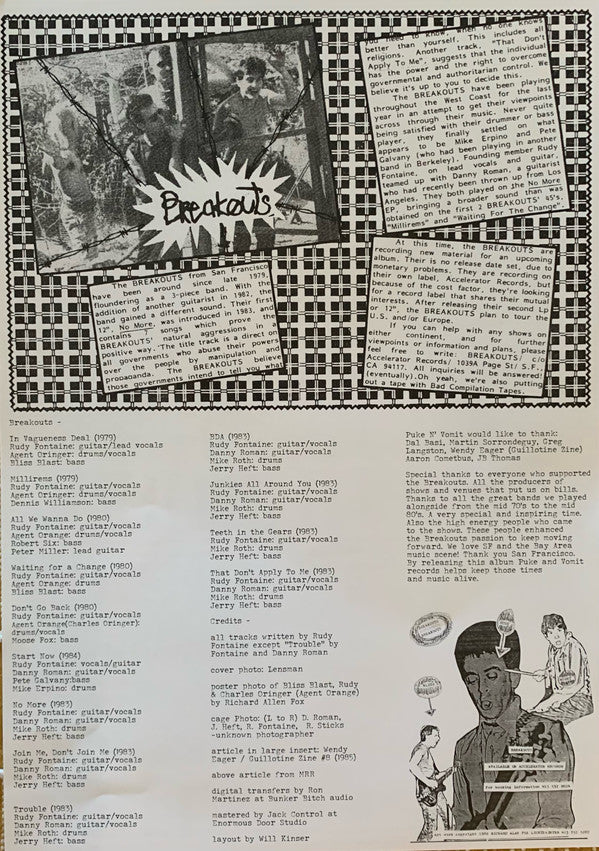 Breakouts
The BREAKOUTS from San Francisco
have been around since late 1979,
floundering as a 3-piece band. With the
addition of another guitarist in 1982, the
band gained a different sound. Their first
12", No More, was introduced in 1983, and
contains 7 songs which prove the
BREAKOUTS' natural aggressions in a
positive way. The title track is a direct on
all governments who abuse their powers
over the people by manipulation and
propaganda. The BREAKOUTS believe
those governments intend to tell you what
you need to know, when no one knows
better than yourself. This includes all
religions. Another track, "That Don't
Apply To Me", suggests that the individual
has the power and the right to overcome
governmental and authoritarian control. We
believe it's up to you to decide this.
The BREAKOUTS have been playing
throughout the West Coast for the last
year in an attempt to get their viewpoints
across through their music. Never quite
being satisfied with their drummer or bass
player, they finally settled on what
appears to be Mike Erpino and Pete
Galvany (who had been playing in another
band in Berkeley). Founding member Rudy
Fontaine, on lead vocals and guitar,
teamed up with Danny Roman, a guitarist
who had recently been thrown up from Los
Angeles. They both played on the No More
EP, bringing a broader sound than was
obtained on the first 2 BREAKOUTS' 45's,
"Millirems" and "Waiting For The Change".
At this time, the BREAKOUTS are
recording new material for an upcoming
album. Their is no release date set, due to
monetary problems. They are recording on
their own label, Accelerator Records, but
because of the cost factor, they're looking
for a record label that shares their mutual
interests. After releasing their second Lp
or 12", the BREAKOUTS plan to tour the
U.S. and/or Europe.
If you can help with any shows on
either continent, and for further
viewpoints or information and plans, please
feel free to write: BREAKOUTS/ c/o
Accelerator Records/ 1039A Page St/ S.F.,
CA 94117. All inquiries will be answered!
(eventually).Oh yeah, we're also putting
out a tape with Bad Compilation Tapes.
Breakouts -
In Vagueness Deal (1979)
Rudy Fontaine: guitar/lead vocals
Agent Oringer: drums/vocals
Bliss Blast: bass
Millirems (1979)
Rudy Fontaine: guitar/vocals
Agent Oringer: drums/vocals
Dennis Williamson: bass
All We Wanna Do (1980)
Rudy Fontaine: guitar/vocals
Agent Orange: drums/vocals
Robert Six: bass
Peter Miller: lead guitar
Waiting for a Change (1980)
Rudy Fontaine: guitar/vocals
Agent Orange: drums
Bliss Blast: bass
Don't Go Back (1980)
Rudy Fontaine: guitar/vocals
Agent Orange(Charles Oringer):
drums/vocals
Moose Fox: bass
Start Now (1984)
Rudy Fontaine: vocals/guitar
Danny Roman: guitar/vocals
Pete Galvany:bass
Mike Erpino: drums
No More (1983)
Rudy Fontaine: guitar/vocals
Danny Roman: guitar/vocals
Mike Roth: drums
Jerry Heft: bass
Join Me, Don't Join Me (1983)
Rudy Fontaine: guitar/vocals
Danny Roman: guitar/vocals
Mike Roth: drums
Jerry Heft: bass
Trouble (1983)
Rudy Fontaine: guitar/vocals
Danny Roman: guitar/vocals
Mike Roth: drums
Jerry Heft: bass
BDA (1983)
Rudy Fontaine: guitar/vocals
Danny Roman: guitar/vocals
Mike Roth: drums
Jerry Heft: bass
Junkies All Around You (1983)
Rudy Fontaine: guitar/vocals
Danny Roman: guitar/vocals
Mike Roth: drums
Jerry Heft: bass
Teeth in the Gears (1983)
Rudy Fontaine: guitar/vocals
Mike Roth: drums
Jerry Heft: bass
That Don't Apply To Me (1983)
Rudy Fontaine: guitar/vocals
Danny Roman: guitar/vocals
Mike Roth: drums
Jerry Heft: bass
Credits -
all tracks written by Rudy
Fontaine except "Trouble" by
Fontaine and Danny Roman
cover photo: Lensman
poster photo of Bliss Blast, Rudy
& Charles Oringer (Agent Orange)
by Richard Allen Fox
cage Photo: (L to R) D. Roman,
J. Heft, R. Fontaine, R. Sticks
-unknown photographer
article in large insert: Wendy
Eager / Guillotine Zine #8 (1985)
above article from MRR
digital transfers by Ron
Martinez at Bunker Bitch audio
mastered by Jack Control at
Enormous Door Studio
layout by Will Kinser
Puke N' Vomit would like to thank:
Dal Basi, Martin Sorrondeguy, Greg
Langston, Wendy Eager (Guillotine Zine)
Aaron Cometbus, JB Thomas
Special thanks to everyone who supported
the Breakouts. All the producers of
shows and venues that put us on bills.
Thanks to all the great bands we played
alongside from the mid 70's to the mid
80's. A very special and inspiring time.
Also the high energy people who came
to the shows. These people enhanced
the Breakouts passion to keep moving
forward. We love SF and the Bay Area
music scene! Thank you San Francisco.
By releasing this album Puke and Vomit
records helps keep those times
and music alive.
BREAKOUTS
AVAILABLE ON ACCELERATOR RECORDS